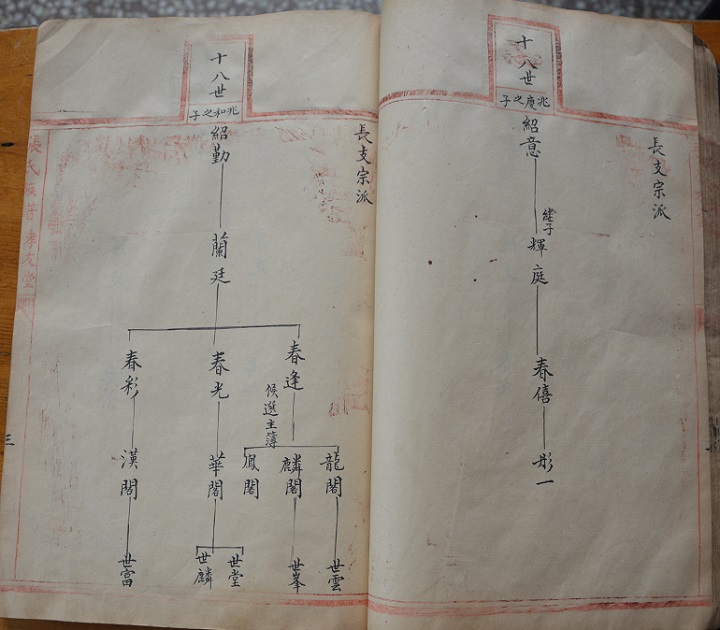 十八世
兆庚之子
長支宗派
紹意
繼子
輝庭
春僖
彤一
十八世
兆和之子
長支宗派
紹勤
蘭廷
春逢
春光
春彩
候選主簿
龍閣
麟閣
鳳閣
華閣
漢閣
世雲
世峯
世堂
世麟
世富
三